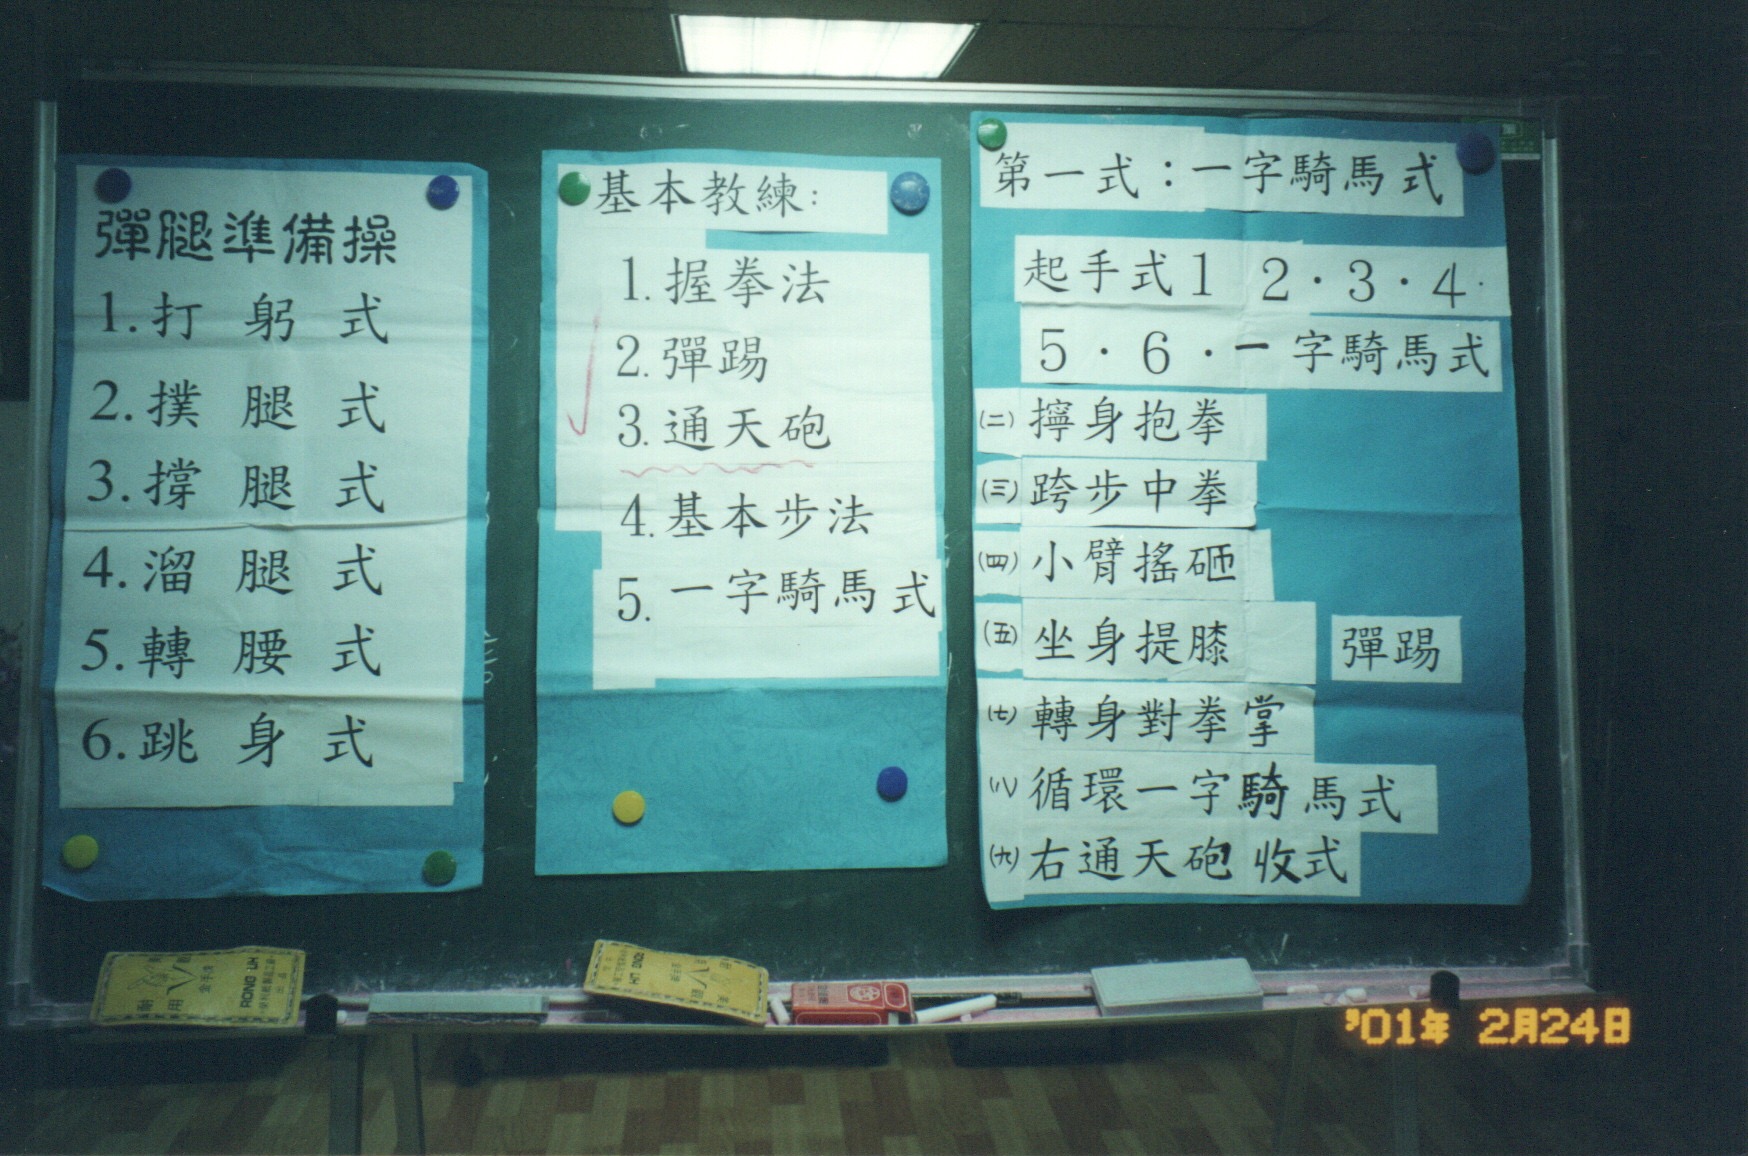 彈腿準備操
1. 打躬式
2. 撲腿式
3. 撐腿式
4. 溜腿式
5. 轉腰式
6. 跳身式
基本教練:
1. 握拳法
2. 彈踢
3. 通天砲
4. 基本步法
5. 一字騎馬式
第一式:一字騎馬式
起手式1 2·3·4·
5·6·一字騎馬式
(二) 擰身抱拳
(三) 跨步中拳
(四) 小臂搖砸
(五) 坐身提膝 彈踢
(七) 轉身對拳掌
(八) 循環一字騎馬式
(九) 右通天砲 收式
'01年 2月24日